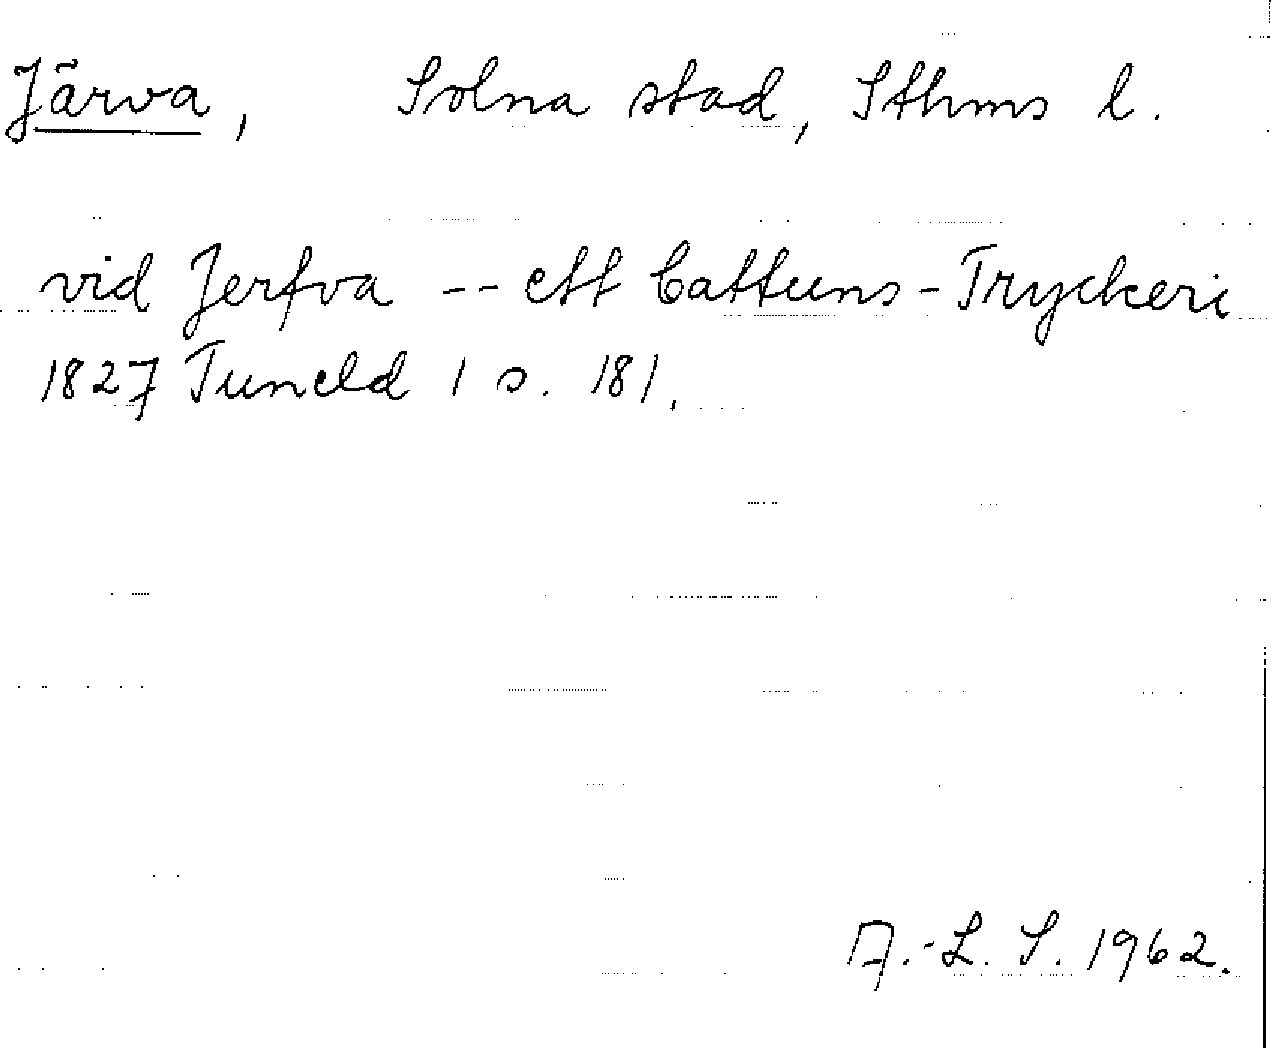 Järva, Solna stad, Sthms l.
vid Jerfva -- ett Cattuns-Tryckeri
1827 Tuneld 1 s. 181.
A.-L. S. 1962.